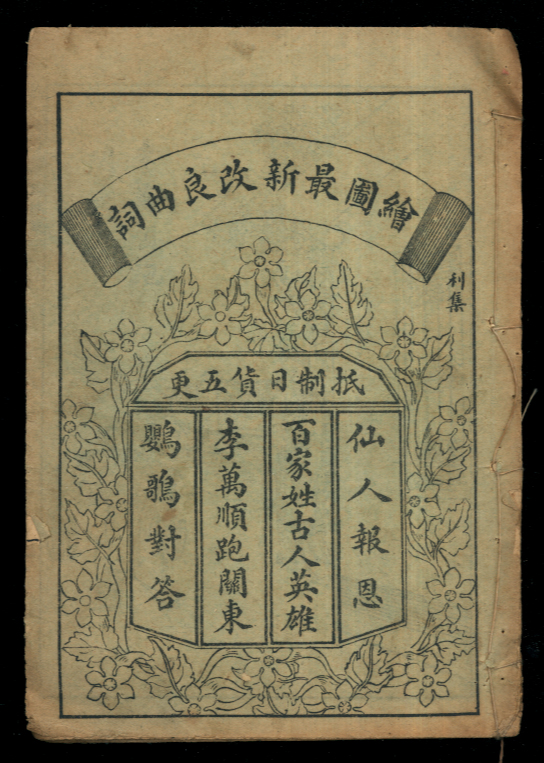 繪圖最新改良曲詞
利集
抵制日貨五更
仙人報恩
百家姓古人英雄
李萬順跑關東
鸚鵡對答